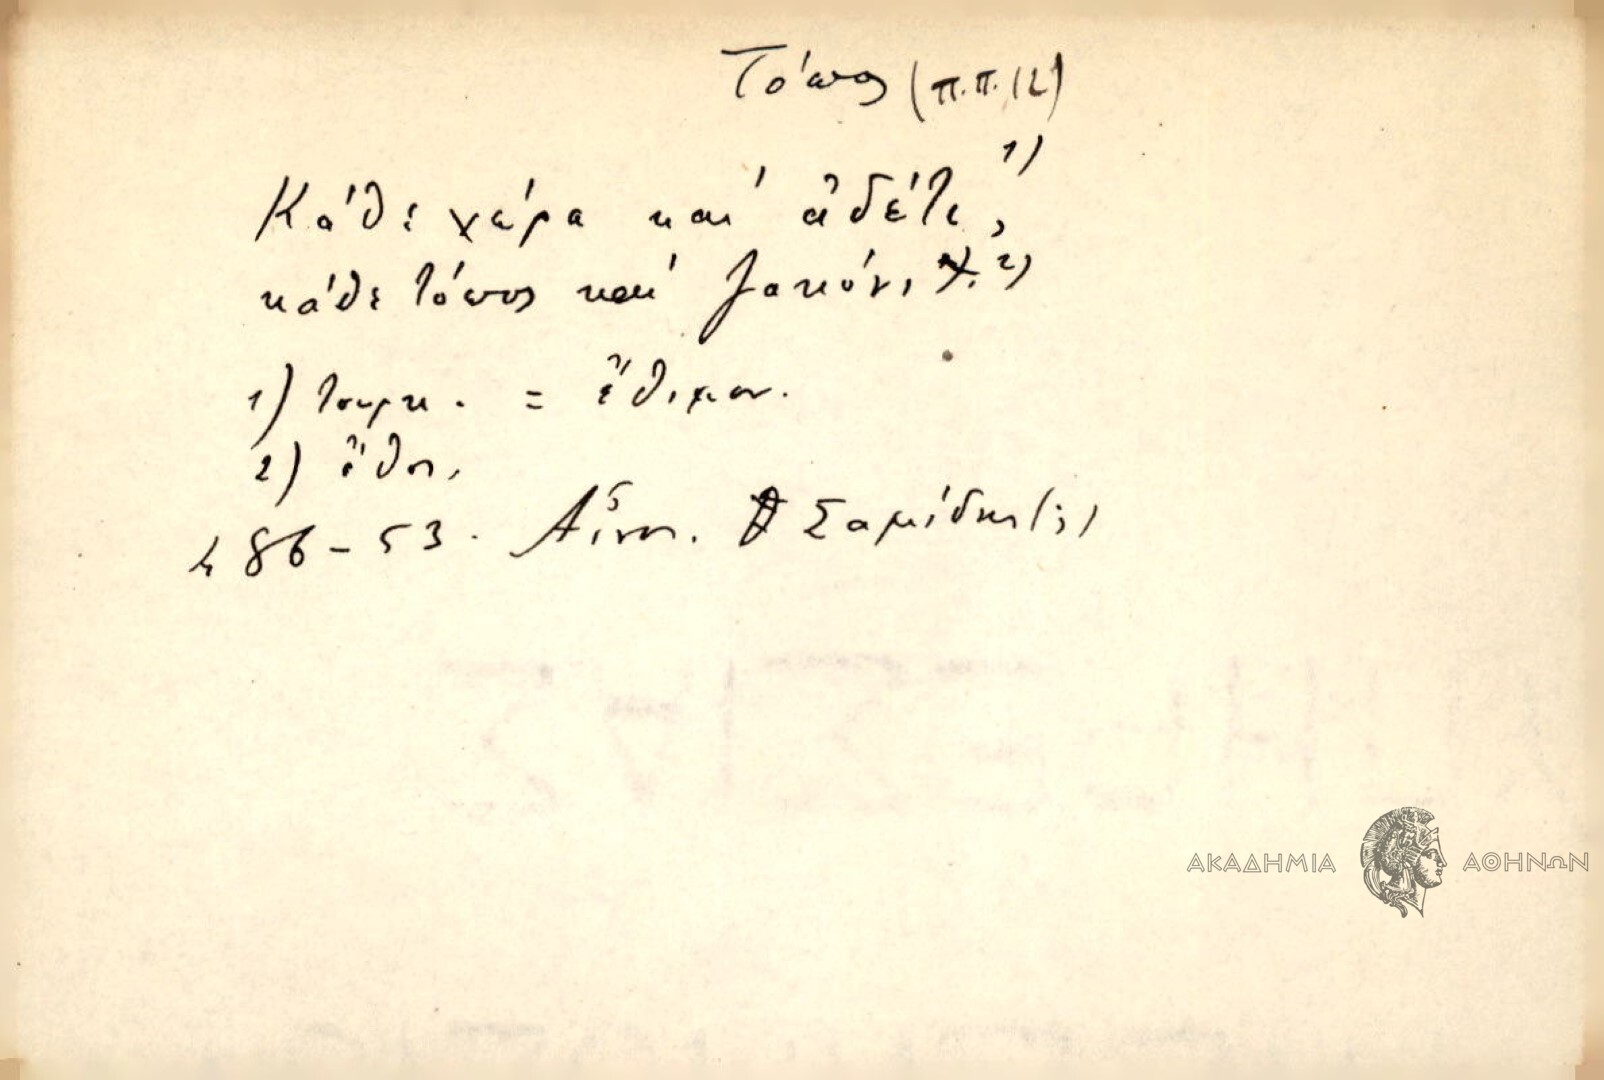 Τόπος (Π.Π. 12)
Κάθε χώρα και ἀδέτι, 1)
κάθε τόπος και ζακόνι. 2)
1) Τουρκ. = ἔθιμον.
2) ἔθος.
486-53. Αἶνος. Σαμίδης (;)
ΑΚΑΔΗΜΙΑ ΑΘΗΝΩΝ